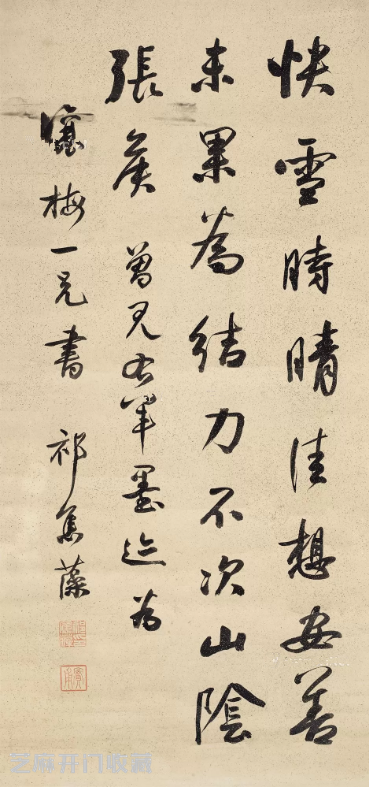 快雪時晴佳想安善
未果為結力不次山陰
張侯 曾見右軍墨迹為
梅一兄書 祁寯藻
芝麻开门收藏